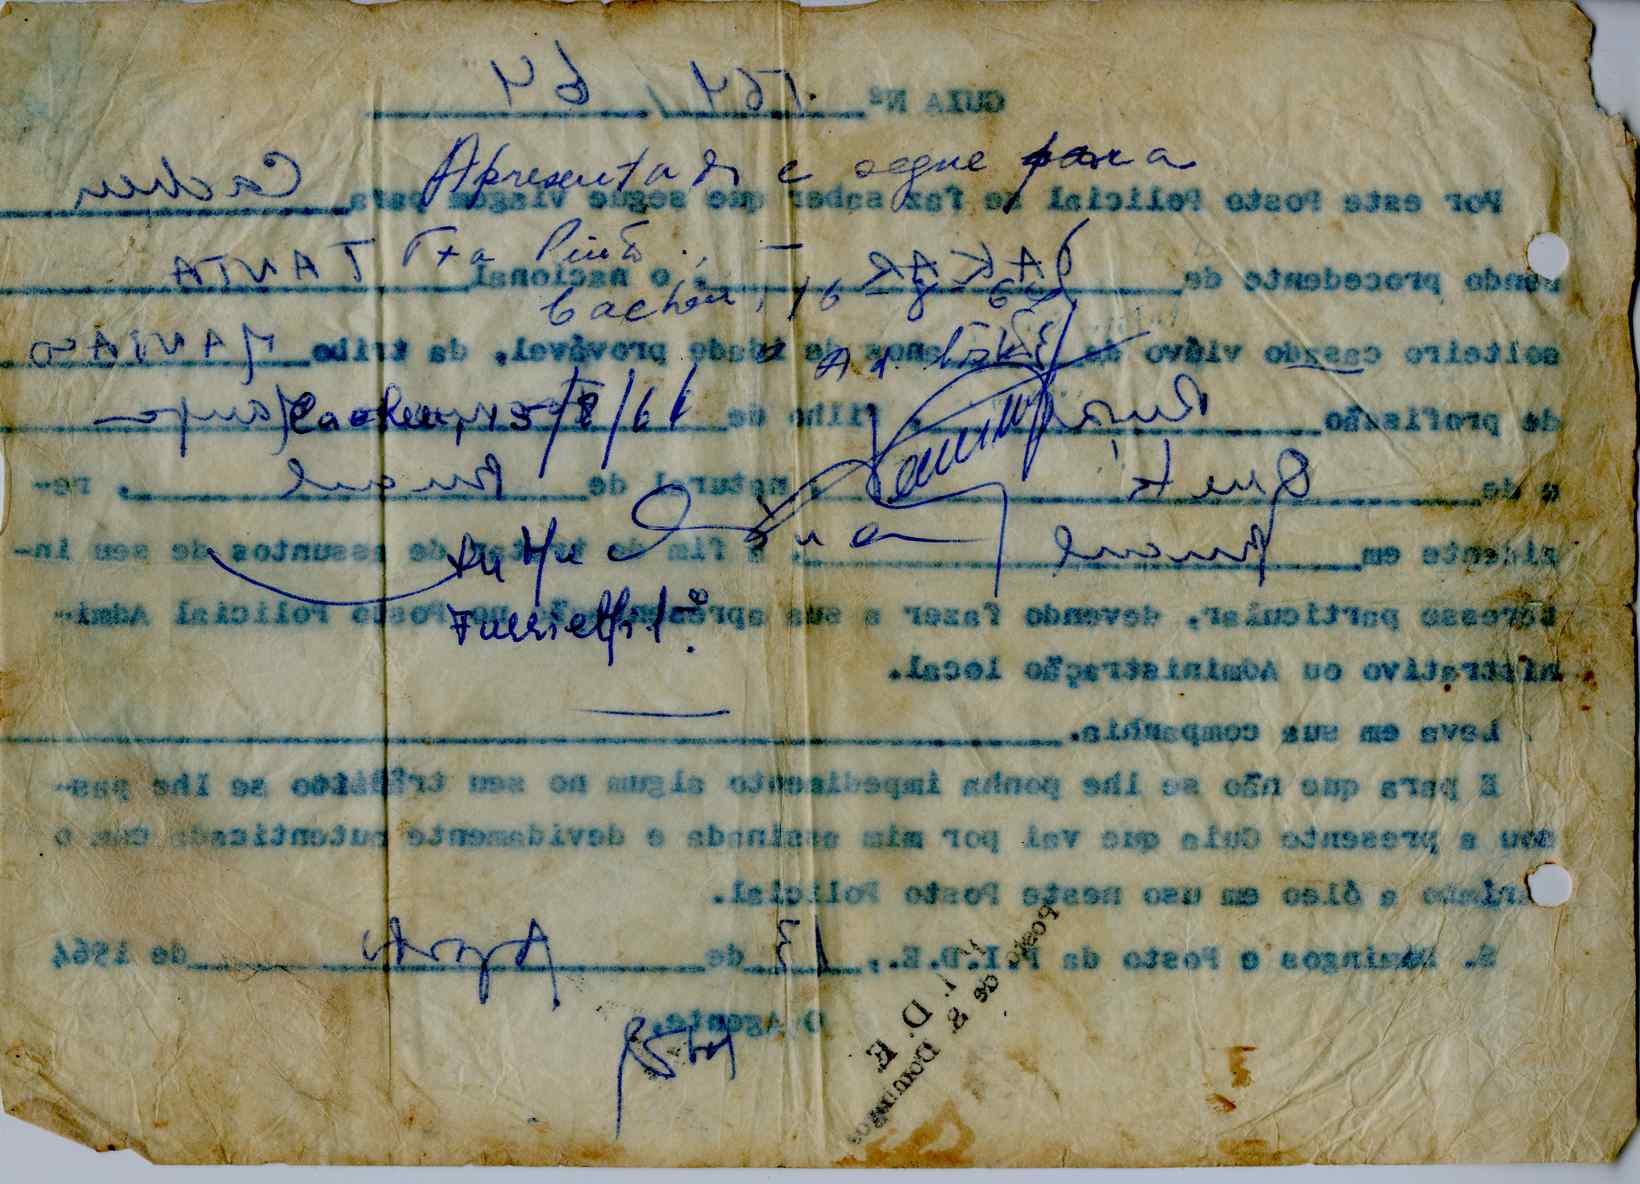 GUIA Nº 164 / 64
Apresentado e segue para
Por este Posto Policial se faz saber que segue viagem para Cacheu
Txa Pinto. —
sendo procedente de DAKAR, o nacional TANTA
Cacheu, 16-8-64
solteiro casado viúvo de anos de idade provável, da tribo MANJACO
de profissão Rural, filho de
Cacheu, 15/8/64
e de Queta, natural de, re-
sidente em, a fim de tratar de assuntos de seu in-
teresse particular, devendo fazer a sua apresentação no Posto Policial Admi-
Furriel
nistrativo ou Administração local.
Leva em sua companhia.
E para que não se lhe ponha impedimento algum no seu trânsito se lhe pas-
sou a presente Guia que vai por mim assinada e devidamente autenticada com o
carimbo a óleo em uso neste Posto Policial.
S. Domingos e Posto da P.I.D.E., 13 de Agosto de 1964
O Agente,
P. I. D. E.
Posto de S. Domingos